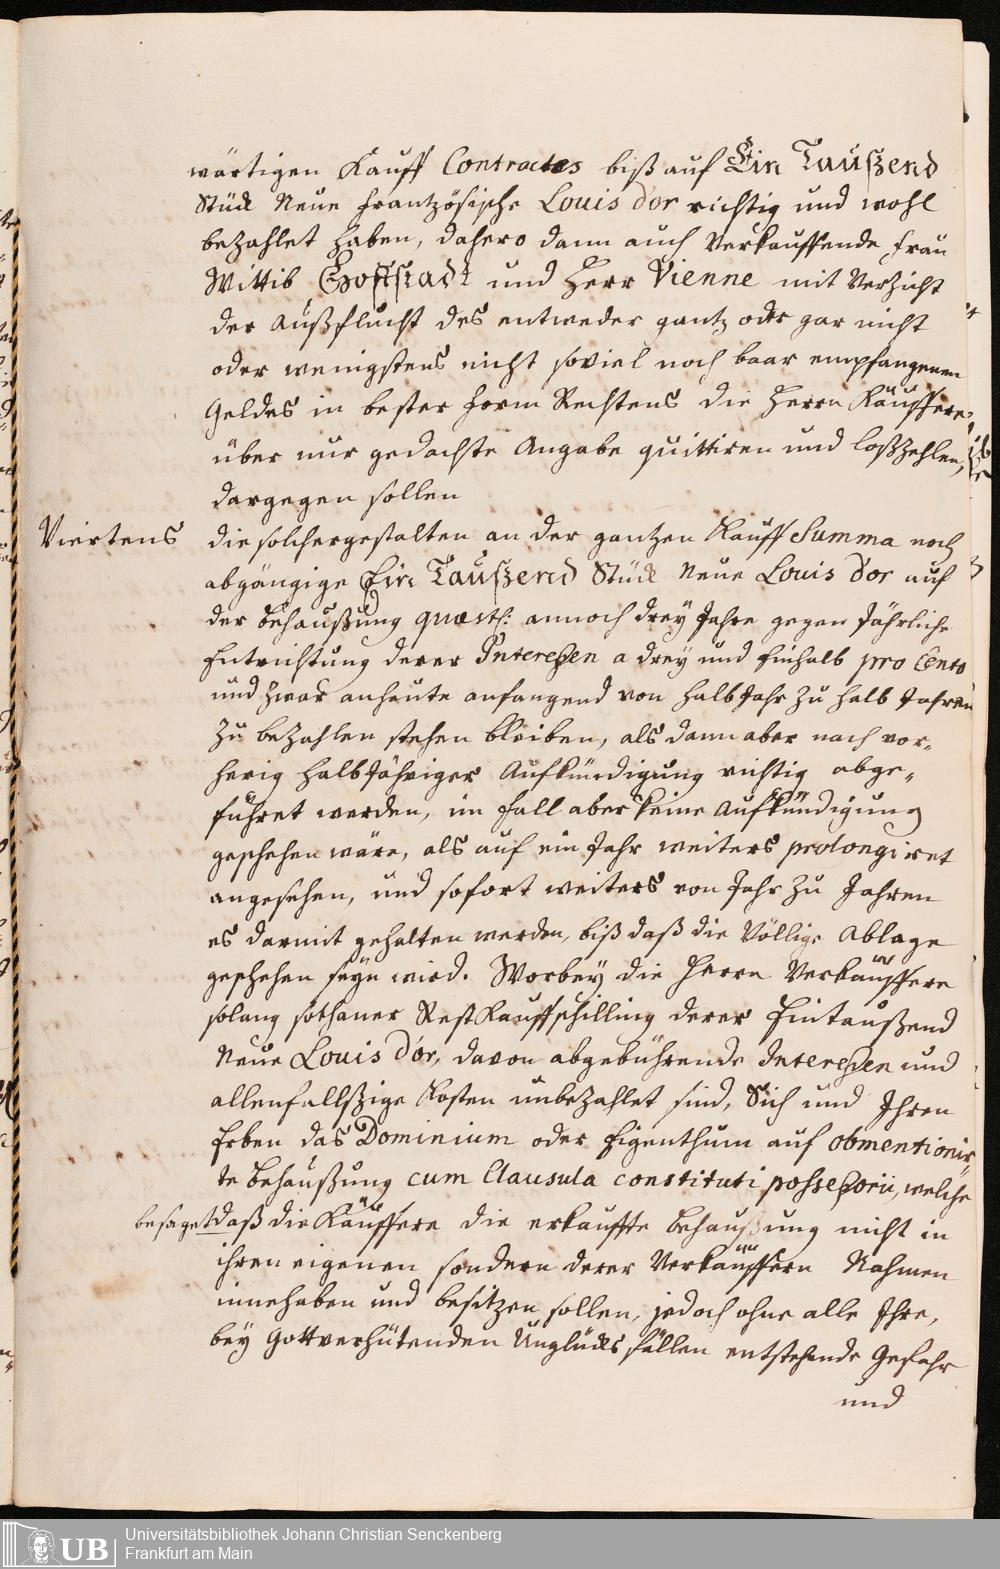 wärtigen Kauff Contractes biß auf Ein Taußend
Stück Neue Frantzösische Louis d'or richtig und wohl
bezahlet haben, dahero dann auch Verkauffende Frau
Wittib Goffstadt und Herr Vienne mit Verzicht
der Außflucht des entweder gantz oder gar nicht
oder wenigstens nicht soviel noch baar empfangenen
Geldes in bester Form Rechtens die Herrn Käuffere
über nur gedachte Angabe quittiren und loßzehlen,
dargegen sollen
Viertens die solchergestalten an der gantzen Kauff Summa noch
abgängige Ein Taußend Stück Neue Louis d'or auf
der Behaußung quæst: annoch drey Jahre gegen Jährliche
Entrichtung derer Interessen a drey und Einhalb pro Cento
und zwar anheute anfangend von halb Jahr zu halb Jahren
zu bezahlen stehen bleiben, als dann aber nach vor-
herig halb Jähriger Aufkündigung richtig abge-
führet werden, im Fall aber keine Aufkündigung
geschehen wäre, als auf ein Jahr weiters prolongiret
angesehen, und sofort weiters von Jahr zu Jahren
es darmit gehalten werden, biß daß die Völlige Ablage
geschehen seyn wird. Worbey die Herrn Verkäuffere
solang sothaner Rest Kauffschilling derer Eintaußend
Neue Louis d'or, davon abgebührende Interessen und
allenfallßige Kosten unbezahlet sind, Sich und Ihren
Erben das Dominium oder Eigenthum auf obmentionir-
te Behaußung cum Clausula constituti possessorii, welche
besaget daß die Käuffere die erkauffte Behaußung nicht in
ihren eigenen sondern derer Verkäuffern Nahmen
innehaben und besitzen sollen, jedoch ohne alle Ihre,
bey Gottverhütenden Unglücks fällen entstehende Gefahr
und
UB
Universitätsbibliothek Johann Christian Senckenberg
Frankfurt am Main